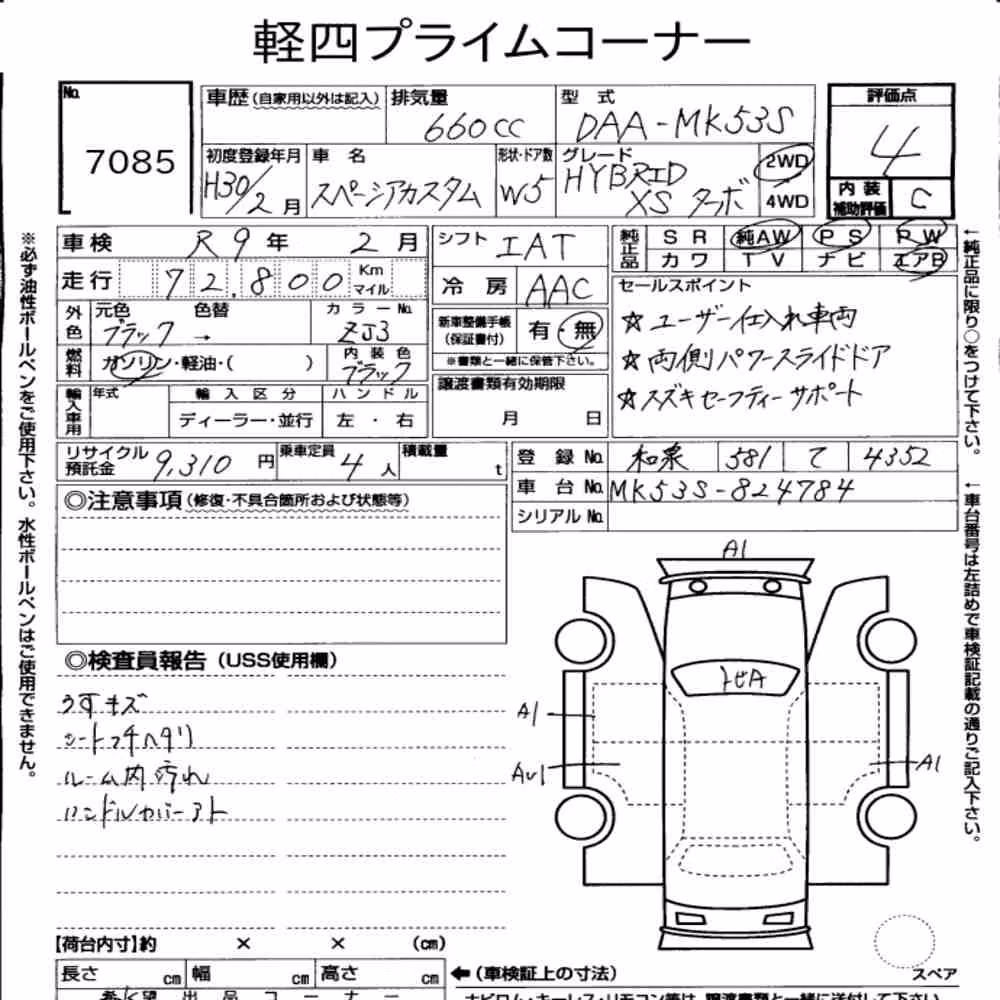 軽四プライムコーナー
No. 7085
車歴(自家用以外は記入) 排気量 660cc 型式 DAA-MK53S
初度登録年月 H30/2月 車名 スペーシアカスタム 形状・ドア数 W5 グレード HYBRID XS ターボ 2WD 4WD
評価点 4
内装補助評価 C
車検 R9年 2月 シフト IAT
走行 72,800 Km マイル 冷房 AAC
純正品 SR 純AW PS PW
カワ TV ナビ エアB
外色 元色 ブラック 色替 → カラーNo. ZJ3
燃料 ガソリン・軽油・( ) 内装色 ブラック
新車整備手帳(保証書付) 有・無
※書類と一緒に保管下さい。
セールスポイント
☆ユーザー仕入れ車両
☆両側パワースライドドア
☆スズキセーフティーサポート
輸入車用 年式 輸入区分 ディーラー・並行 ハンドル 左・右
譲渡書類有効期限 月 日
リサイクル預託金 9,310円 乗車定員 4人 積載量 t
登録No. 和泉 581 て 4352
車台No. MK53S-824784
シリアルNo.
◎注意事項(修復・不具合箇所および状態等)
◎検査員報告(USS使用欄)
うすキズ
シートコゲヘタリ
ルーム内汚れ
ハンドルカバーアト
A1
トビA
A1
AU1
A1
スペア
【荷台内寸】約 × × (cm)
長さ cm 幅 cm 高さ cm ←(車検証上の寸法)
※必ず油性ボールペンをご使用下さい。水性ボールペンはご使用できません。
←純正品に限り○をつけて下さい。
←車台番号は左詰めで車検証記載の通りご記入下さい。